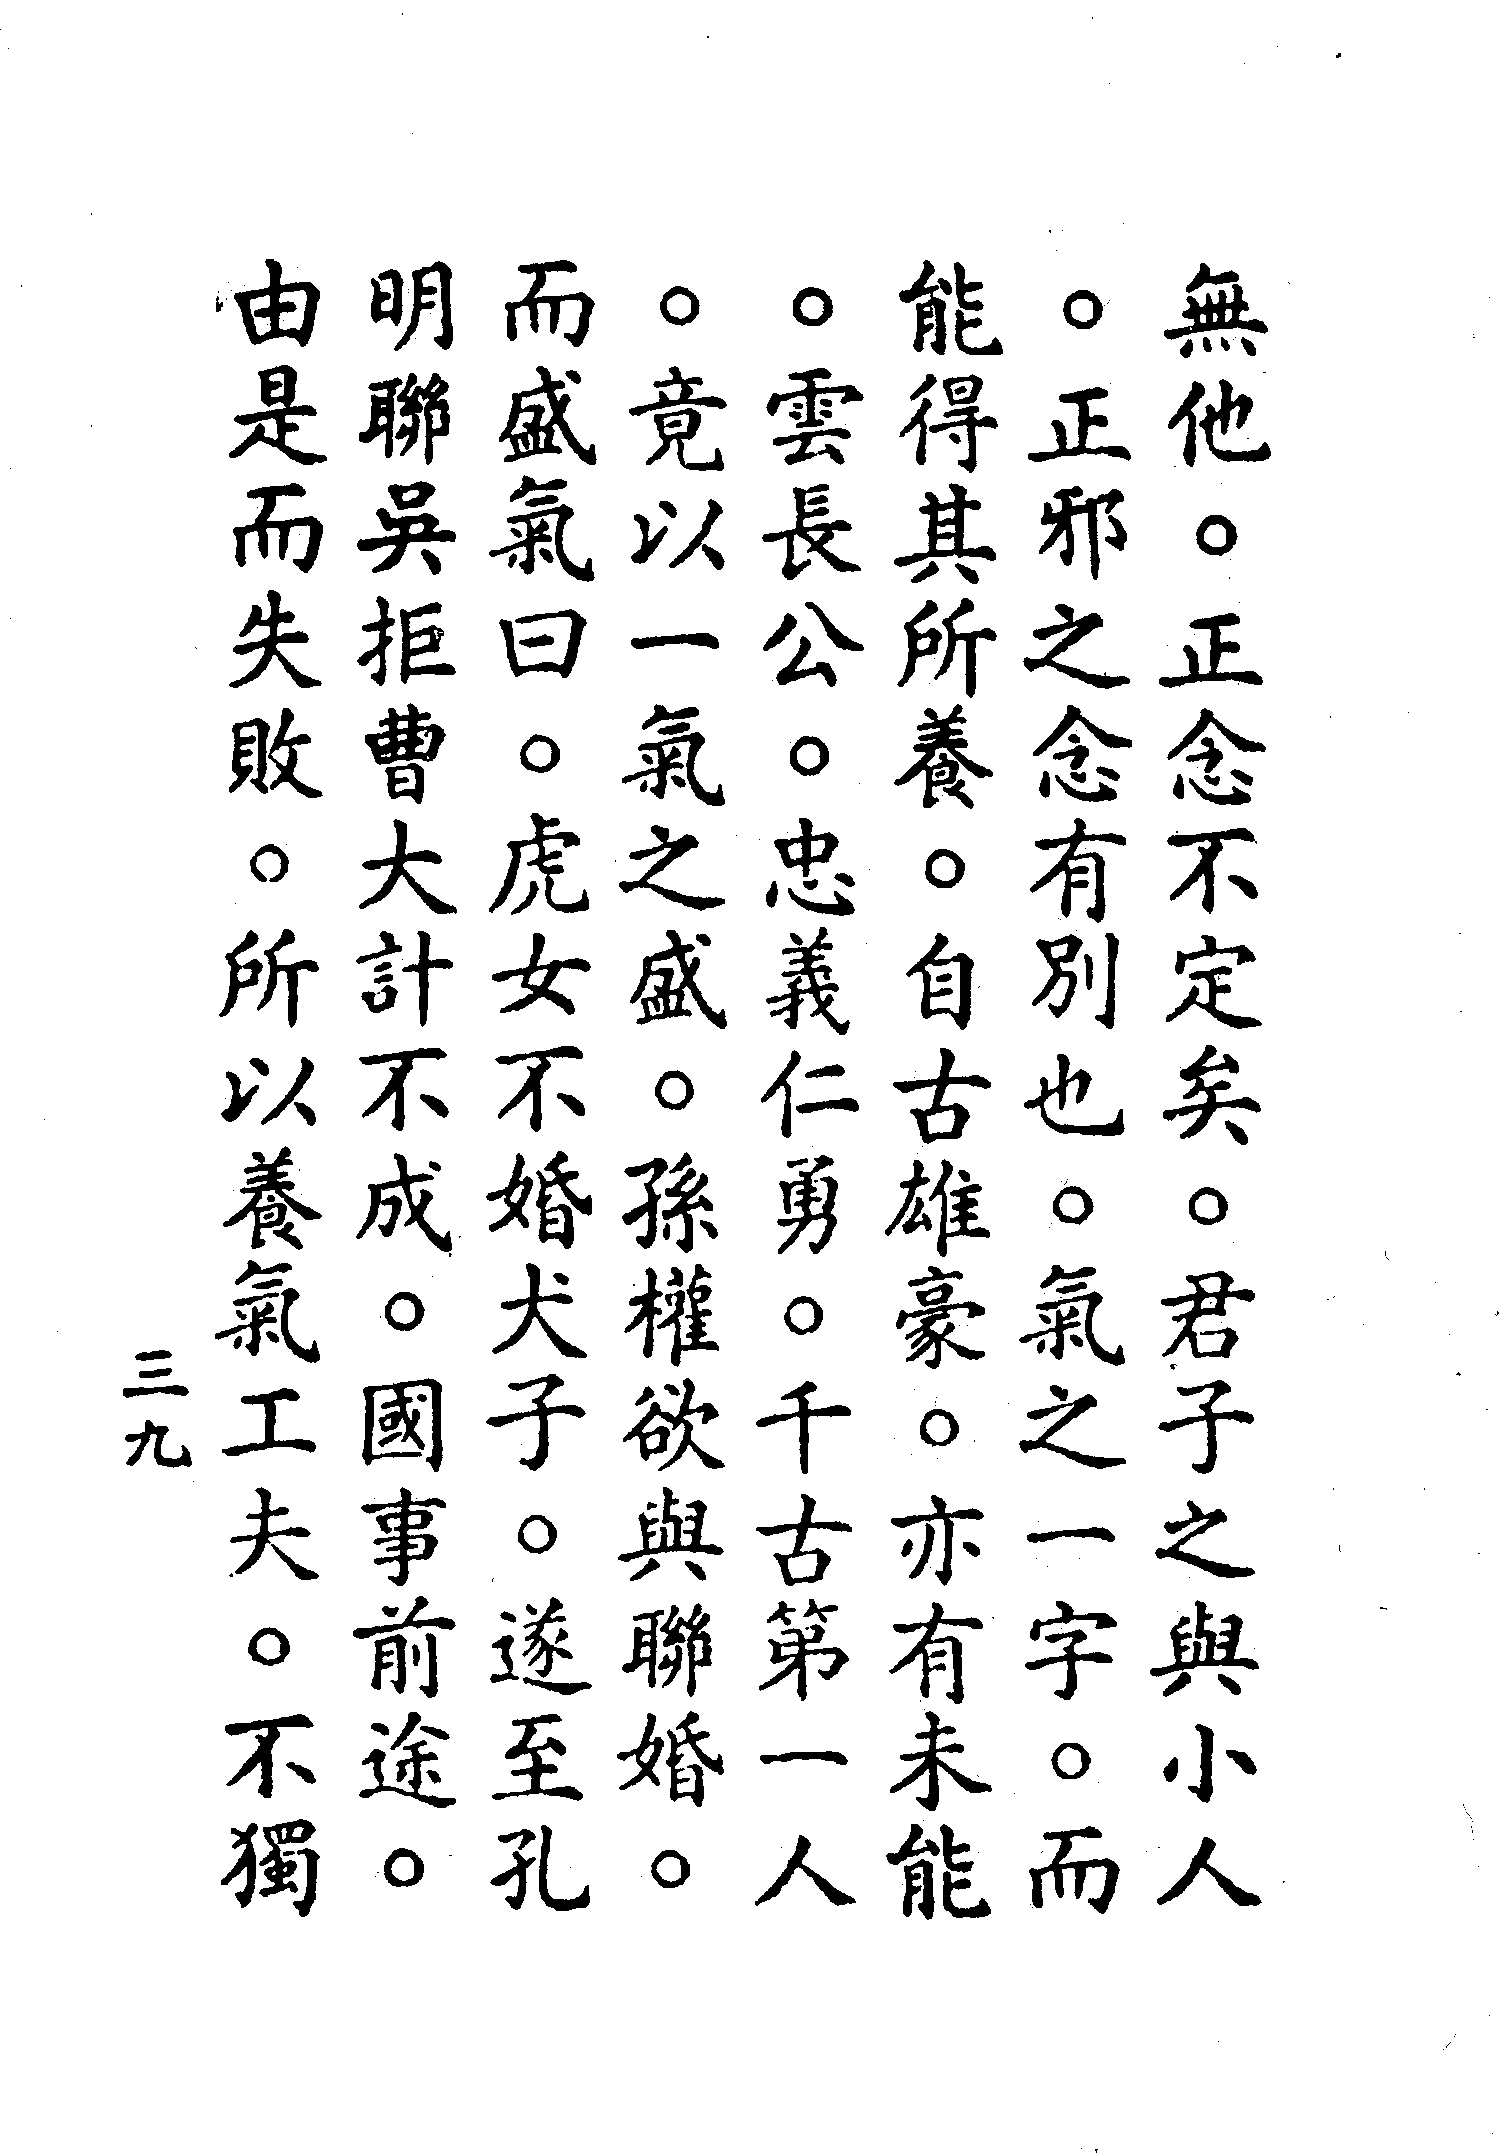 無他。正念不定矣。君子之與小人
。正邪之念有別也。氣之一字。而
能得其所養。自古雄豪。亦有未能
。雲長公。忠義仁勇。千古第一人
。竟以一氣之盛。孫權欲與聯婚。
而盛氣曰。虎女不婚犬子。遂至孔
明聯吳拒曹大計不成。國事前途。
由是而失敗。所以養氣工夫。不獨
三九